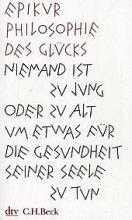 EPIKUR
PHILOSOPHIE
DES GLÜCKS
NIEMAND IST
ZU JUNG
ODER ZU ALT
UM ETWAS FÜR
DIE GESUNDHEIT
SEINER SEELE
ZU TUN
dtv C.H.Beck